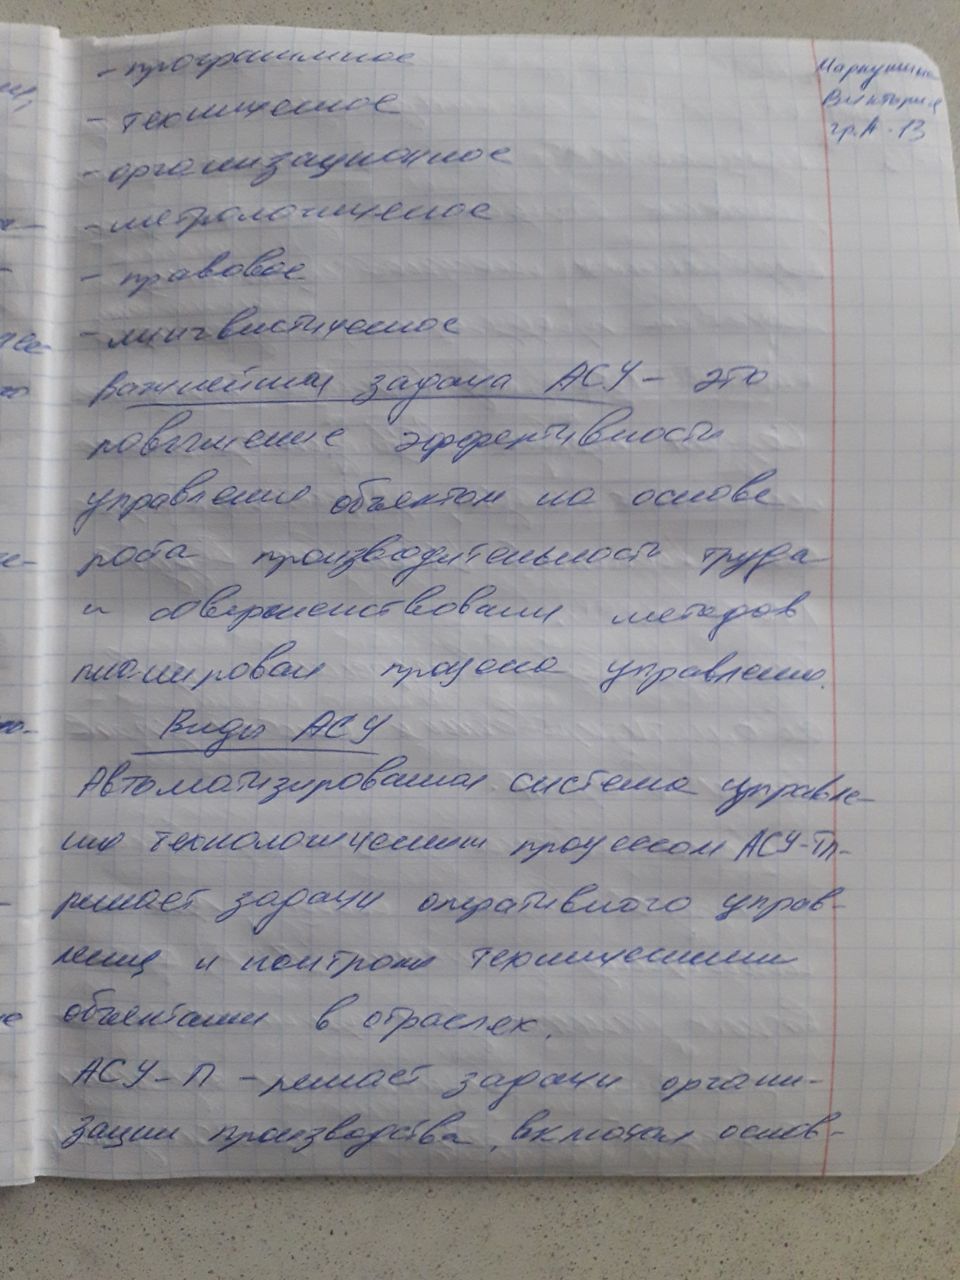 - программное
- техническое
- организационное
- метрологическое
- правовое
- лингвистическое
Важнейшая задача АСУ - это
повышение эффективности
управления объектом на основе
роста производительности труда
и совершенствования методов
планирован процесса управления.
Виды АСУ
Автоматизированная система управле-
ния технологическим процессом АСУ-ТП-
решает задачи оперативного управ-
ления и контроля техническими
объектами в отраслях.
АСУ-П - решает задачи органи-
зации производства, включая основ-
Виктория
гр.А-13